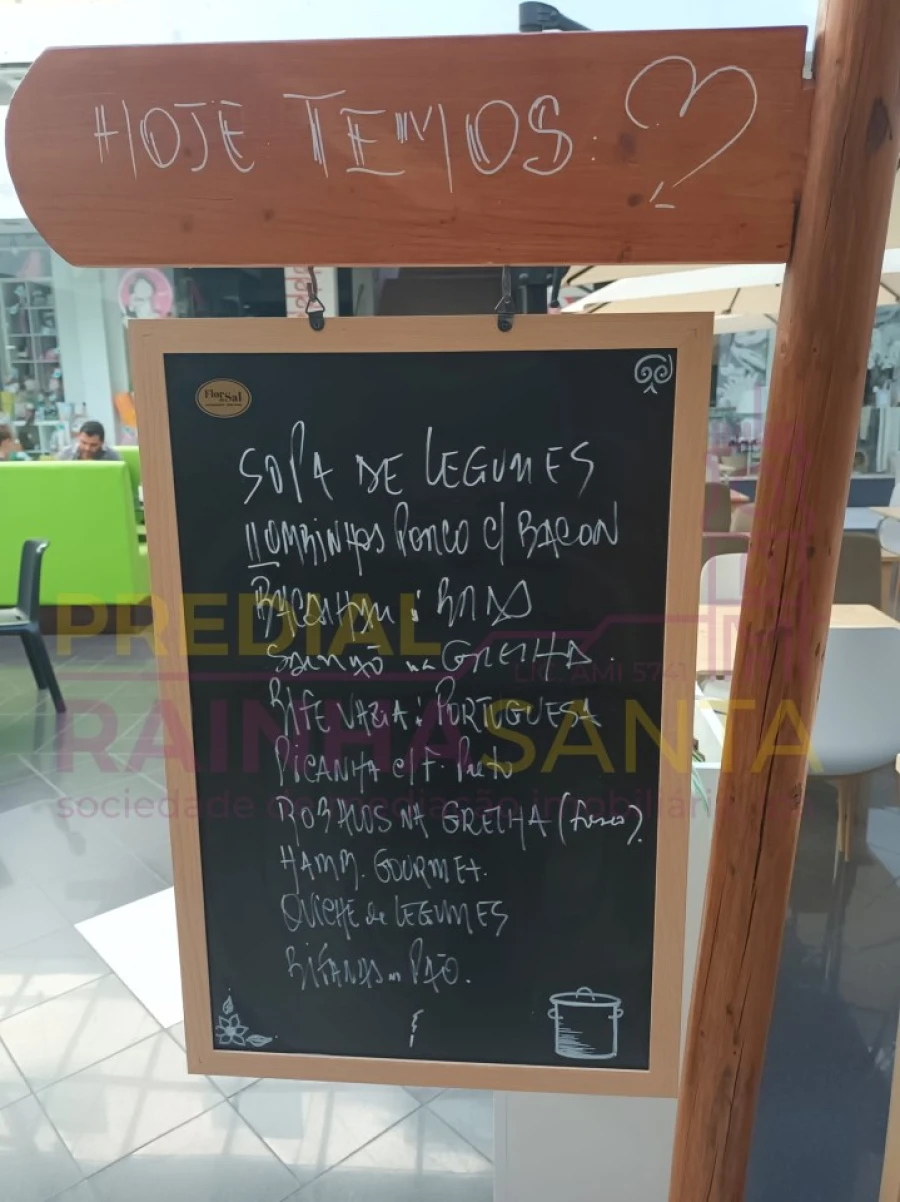 HOJE TEMOS:
Flor do Sal
SOPA DE LEGUMES
LOMBINHOS PORCO C/ BACON
BACALHAU : BRÁS
SALMÃO na GRELHA.
BIFE VAZIA : PORTUGUESA
PICANHA C/ F. Preto
ROBALOS NA GRELHA (fresco).
HAMB. GOURMET.
QUICHE de LEGUMES
BIFANAS no PÃO.
PREDIAL
LIC. AMI 5741
RAINHASANTA
sociedade de mediação imobiliária